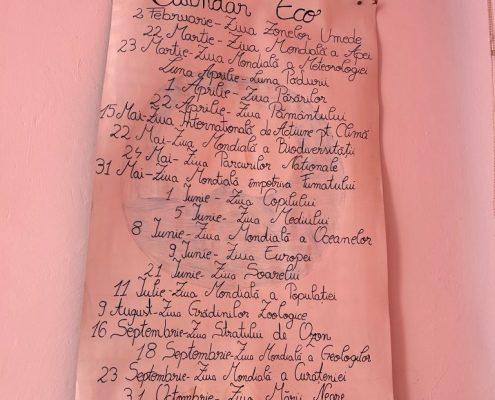 Calendar Eco
2 Februarie-Ziua Zonelor Umede
22 Martie-Ziua Mondială a Apei
23 Martie-Ziua Mondială a Meteorologiei
Luna Aprilie-Luna Pădurii
1 Aprilie-Ziua Păsărilor
22 Aprilie-Ziua Pământului
15 Mai-Ziua Internațională de Acțiune pt. Climă
22 Mai-Ziua Mondială a Biodiversității
24 Mai-Ziua Parcurilor Naționale
31 Mai-Ziua Mondială împotriva Fumatului
1 Iunie-Ziua Copilului
5 Iunie-Ziua Mediului
8 Iunie-Ziua Mondială a Oceanelor
9 Iunie-Ziua Europei
21 Iunie-Ziua Soarelui
11 Iulie-Ziua Mondială a Populației
9 August-Ziua Grădinilor Zoologice
16 Septembrie-Ziua Stratului de Ozon
18 Septembrie-Ziua Mondială a Geologilor
23 Septembrie-Ziua Mondială a Curățeniei
31 Octombrie-Ziua Mării Negre